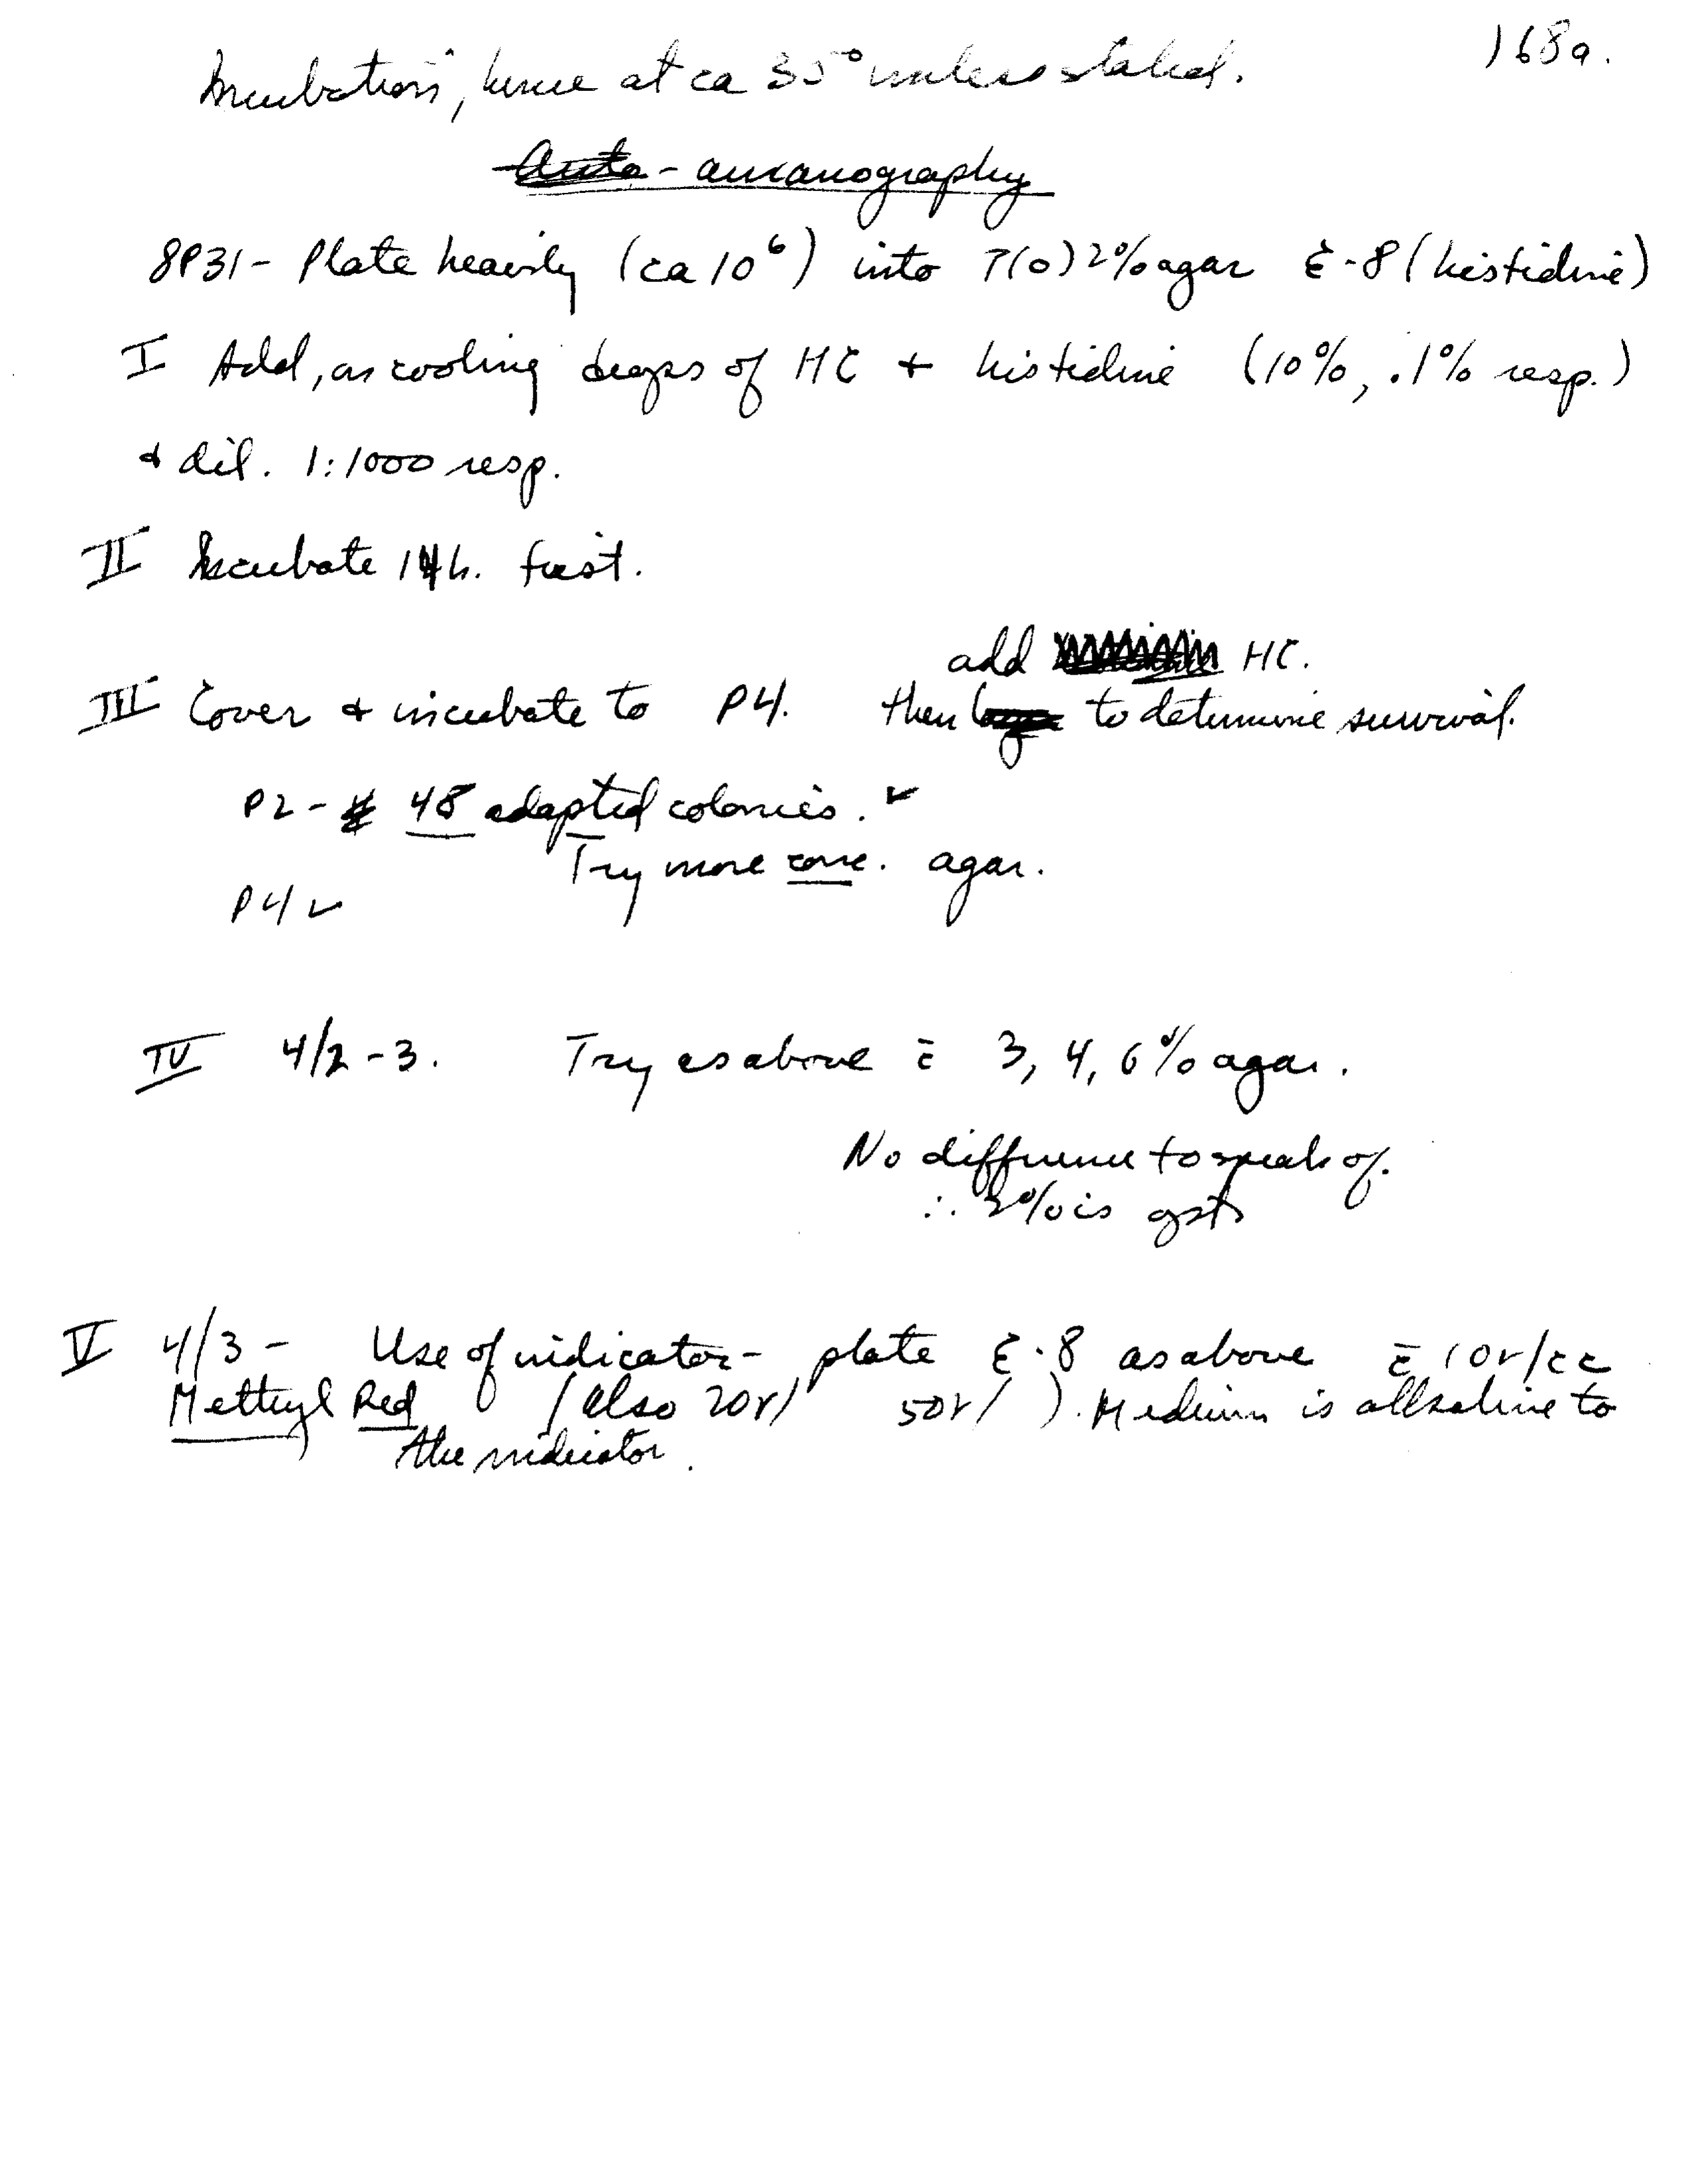 168a.
Incubation, hence at ca 35° unless stated.
Auto - auxanography
8P31 - Plate heavily (ca 10⁶) into T(0) 2% agar E-8 (histidine)
I Add, as cooling drops of HC + histidine (10%, .1% resp.)
+ dil. 1:1000 resp.
II Incubate 14h. first.
add HC.
III Cover + incubate to P4. then to determine survival.
P2 - 48 adapted colonies. ✓
Try more conc. agar.
P4 ✓
IV 4/2-3. Try as above c̄ 3, 4, 6% agar.
No difference to speak of.
∴ 2% is
V 4/3 - Use of indicator - plate E-8 as above c̄ 10γ/cc
Methyl Red (also 20γ/ 50γ/ ). Medium is alkaline to
the indicator.